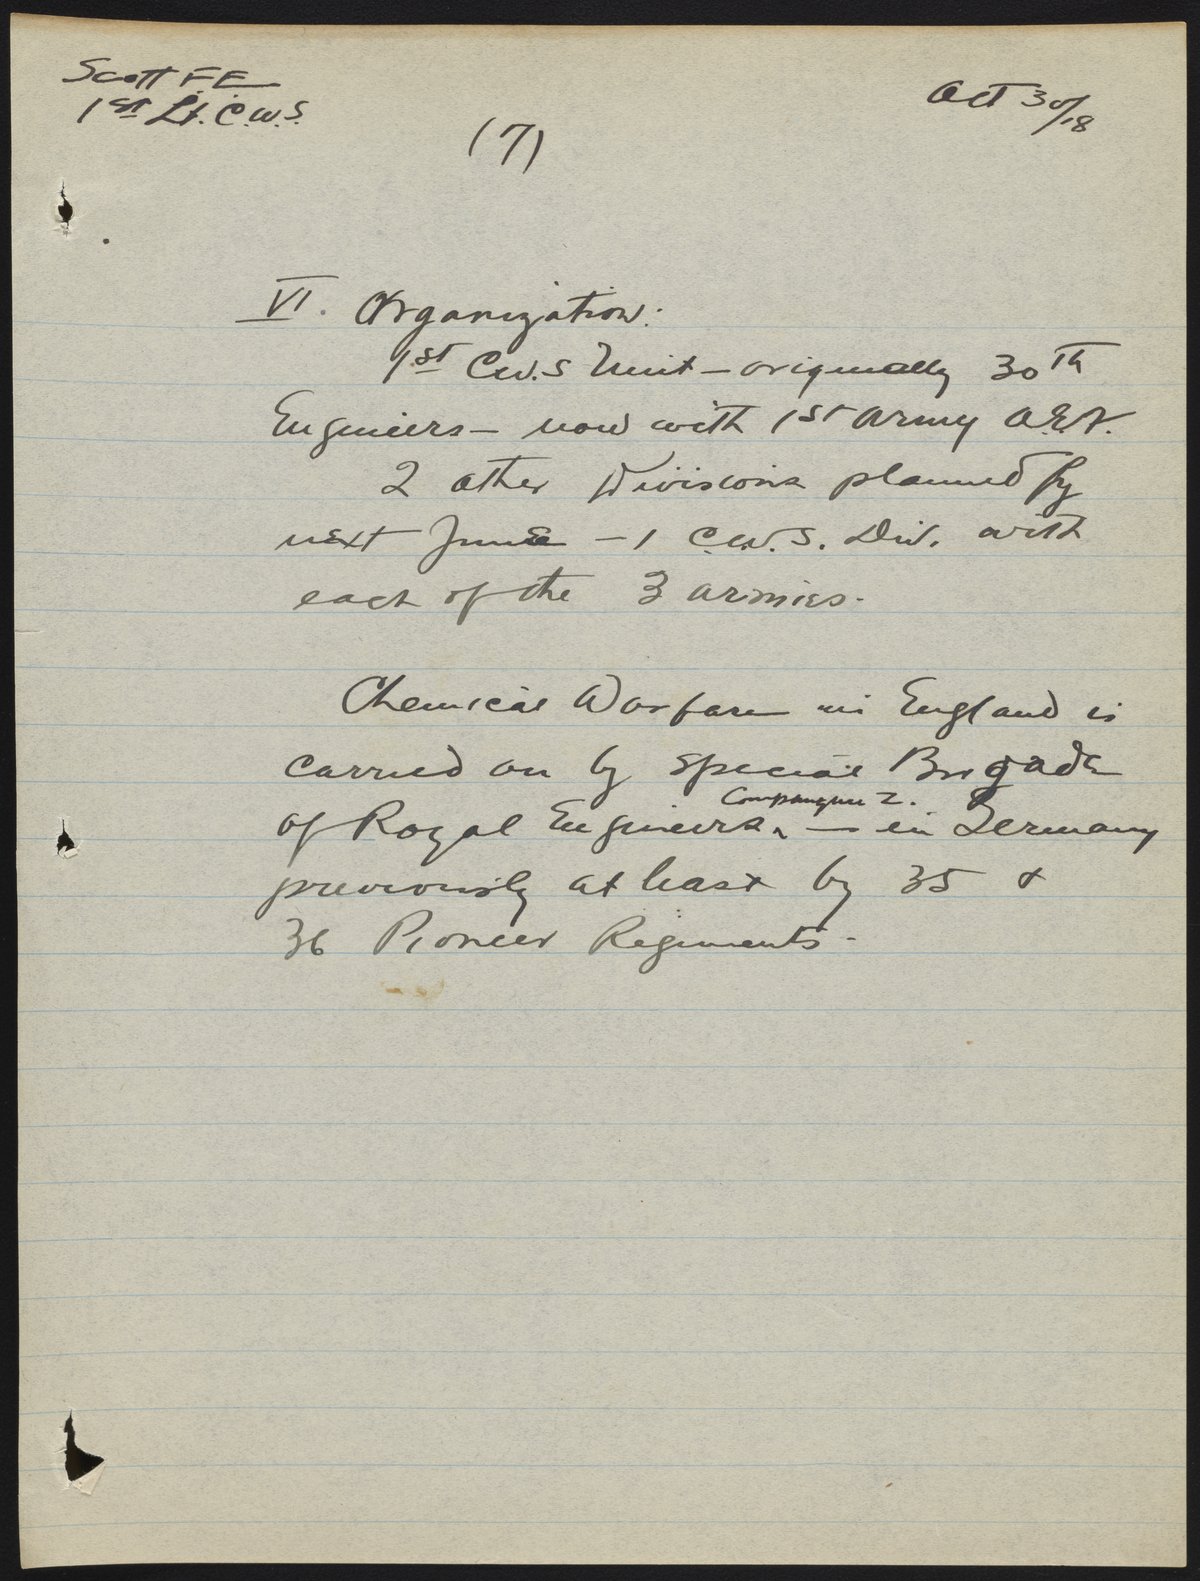 Scott F.E.
1st Lt. C.W.S.
Oct 30/18
(7)
VI. Organization:
1st C.W.S Unit – originally 30th
Engineers – now with 1st Army A.E.F.
2 other Divisions planned by
next June – 1 C.W.S. Div. with
each of the 3 armies.
Chemical Warfare in England is
carried on by Special Brigade
Companies
of Royal Engineers ‸ — in Germany
previously at least by 35 &
36 Pioneer Regiments.